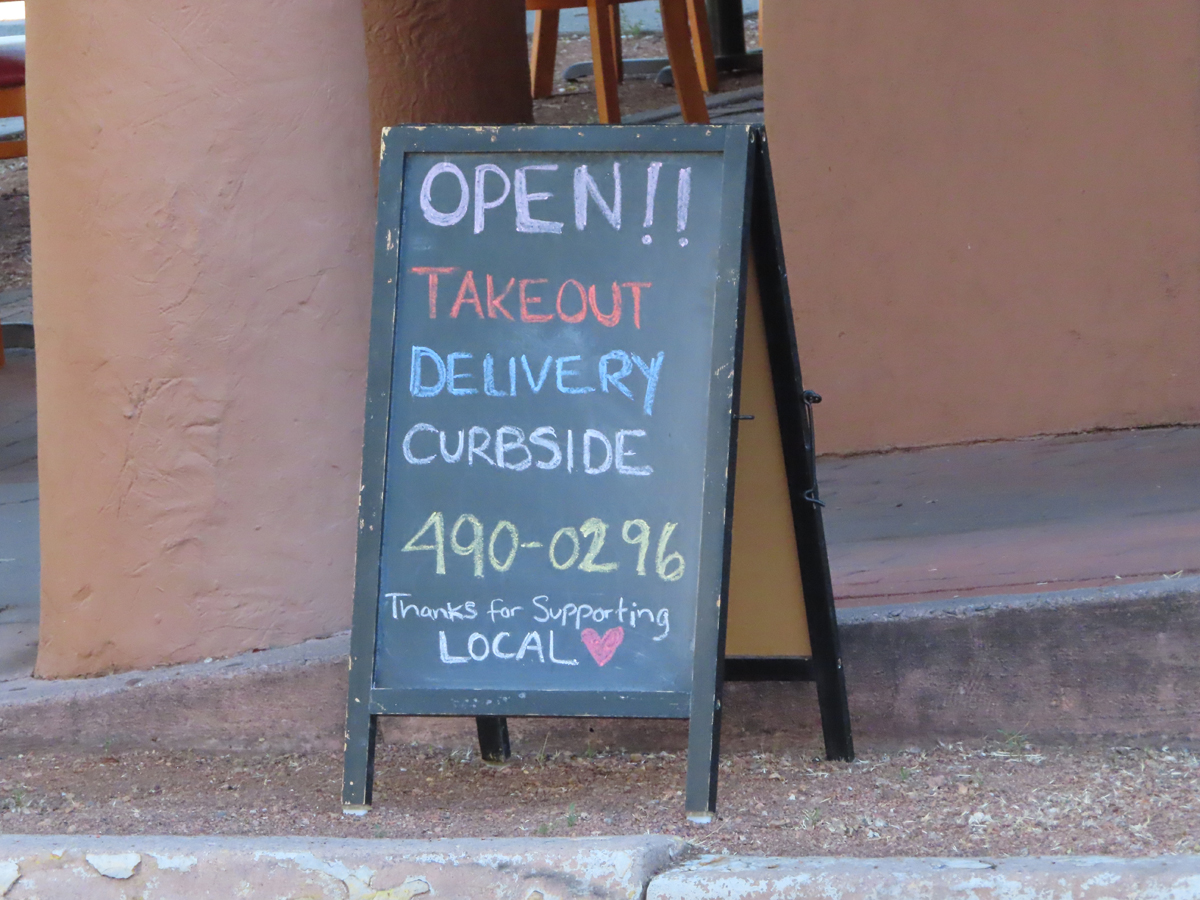 OPEN!!
TAKEOUT
DELIVERY
CURBSIDE
490-0296
Thanks for Supporting
LOCAL ♥